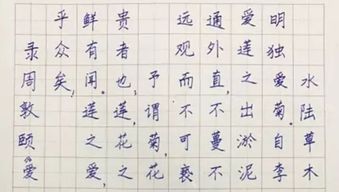 水陆草木
明独爱菊.自李
爱莲之出淤泥
通外直,不蔓不
远观而不可亵
予谓菊,花
贵者也,莲花之
鲜有闻。莲之爱,
乎众矣,
录周敦颐《爱